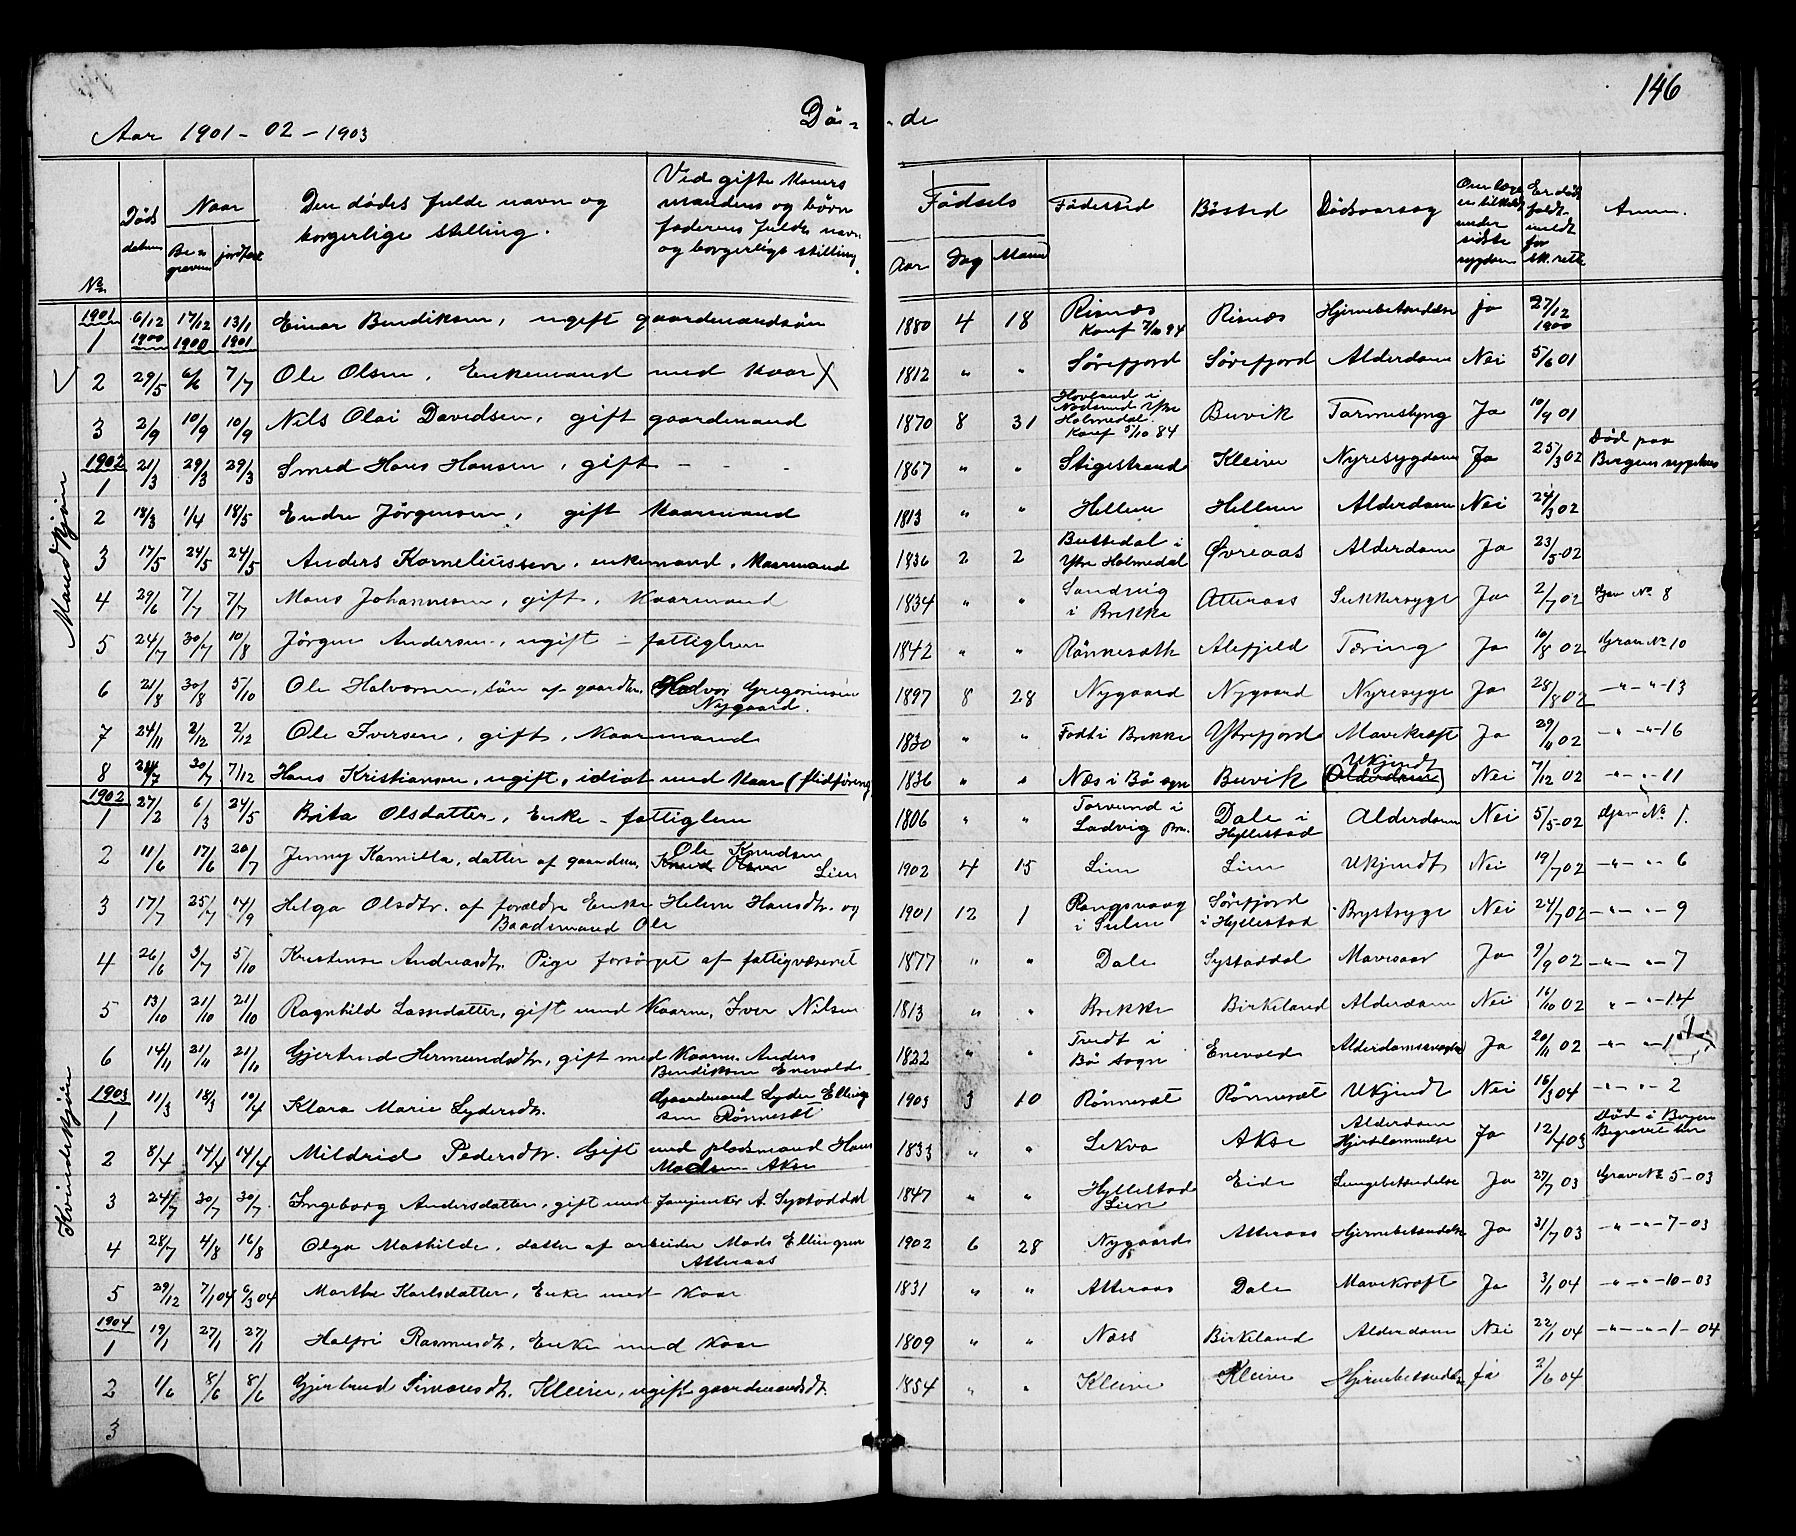 146
Dø- -de
Aar 1901-02-1903
No. Døds datum Naar Be-graven jordfæst Den dødes fulde navn og borgerlige stilling. Ved gifte Koners mandens og børn faderens fulde navn og borgerlige stilling. Fødsels Aar Dag Maaned Fødested Bosted Dødsaarsag Om læge er tilkaldt under sidste sygdom Er dødsfaldt meldt for sk. rett Anm.
Mandkjøn
1901
1 6/12 1900 17/12 1900 13/1 1901 Einar Bendiksen, ugift gaardmandsøn 1880 4 18 Risnes Konf 7/10 94 Risnes Hjernebetændelse ja 27/12 1900
2 29/5 6/6 7/7 Ole Olsen, Enkemand med Kaar X 1812 " " Sørefjord Sørefjord Alderdom Nei 5/6 01
3 2/9 10/9 10/9 Nils Olai Davidsen, gift gaardmand 1870 8 31 Hovland i Ytre Holmedal Konf 5/10 84 Buvik Tarmeslyng Ja 10/9 01
1902
1 21/3 29/3 29/3 Smed Hans Hansen, gift - - - 1867 " " Stigestrand Kleive Nyresygdom Ja 25/3 02 Død paa Bergens sygehus
2 18/3 1/4 18/5 Endre Jørgensen, gift Kaarmand 1813 " " Hellen Hellen Alderdom Nei 24/3 02
3 17/5 24/5 24/5 Anders Korneliussen, enkemand, Kaarmand 1836 2 2 i Ytre Holmedal Øvreaas Alderdom Ja 23/5-02
4 29/6 7/7 7/7 Mons Johannesen, gift, Kaarmand 1834 " " i Brekke Atteraas Sukkersyge Ja 2/7 02 Grav No 8
5 24/7 30/7 10/8 Jørgen Andersen, ugift - fattiglem 1842 " " Rønneseth Alefjeld Tæring Ja 10/8 02 Grav No 10
6 21/8 30/8 5/10 Ole Halvorsen, søn af gaardbr. Halvor Gregoriussen Nygaard. 1897 8 28 Nygaard Nygaard Nyresyge Ja 28/8 02 -"- "-13
7 24/11 2/12 2/12 Ole Iversen, gift, Kaarmand 1830 " " Født i Brekke Ytrefjord Mavekræft Ja 29/11 02 -"- "-16
8 24/7 30/7 7/12 Hans Kristiansen, ugift, idiot med Kaar (flidføring 1836 " " Næs i Bø sogn Buvik Ukjendt (Alderdom) Nei 7/12 02 -"- "-11
Kvindekjøn
1902
1 27/2 6/3 24/5 Brita Olsdatter, Enke - fattiglem 1806 " " Torvund i Ladvig Dale i Hyllestad Alderdom Nei 5/5-02 Grav No 1.
2 11/6 17/6 20/7 Jenny Kamilla, datter af gaardm. Ole Knudsen Knud Olsen Lien 1902 4 15 Lien Lien Ukjendt Nei 19/7 02 -"- "-6
3 17/7 25/7 14/9 Helga Olsdtr. af forældre Enke Helene Hansdtr. og Baadsmand Ole 1901 12 1 Rangsvaag i Sulen Sørefjord i Hyllestad Brystsyge Nei 24/7 02 -"- "-9
4 26/6 3/7 5/10 Kristense Andreasdtr. Pige forsørget af fattigvæsenet 1877 " " Dale Systaddal Mavesaar Ja 9/9 02 -"- "-7
5 13/10 21/10 21/10 Ragnhild Lassedatter, gift med Kaarm. Iver Nilsen 1813 " " Brekke Birkeland Alderdom Nei 16/10 02 " -"-14
6 14/11 21/11 21/11 Gjertrud Hermundsdtr, gift med Kaarm. Anders Bendiksen Enevolds 1822 " " i Bø Sogn Enevold Alderdomssvaghed Ja 20/11 02 -"- "-1
1903
1 11/3 18/3 19/4 Klara Marie Lydersdtr. Gaardmand Lyder Ellingsen Rønneset 1903 3 10 Rønneset Rønneset Ukjendt Nei 16/3 04 -"- "-2
2 8/4 14/4 14/4 Mildrid Pedersdtr. Gift med pladsmand Hans Madsen Akse 1833 " " Lekva Akse Alderdom Hjertelammelse Ja 12/4 03 Død i Bergen Begravet her
3 24/7 30/7 30/7 Ingeborg Andersdatter, gift med A. Systaddal 1847 " " Hyllestad Lien Eide Lungebetændelse Ja 27/7 03 Grav No 5-03
4 28/7 4/8 16/8 Olga Mathilde, datter af arbeider Mads Ellingsen Atteraas 1902 6 28 Nygaard Atteraas Hjernebetændelse Ja 31/7 03 -"- "-7-03
5 29/12 7/1 04 6/3 04 Marthe Karlsdatter, Enke med Kaar 1831 " " Atteraas Dale Mavekræft Ja 3/1 04 -"- "-10-03
1904
1 19/1 27/1 27/1 Halfri Rasmusdtr, Enke med Kaar 1809 " " Næss Birkeland Alderdom Nei 22/1 04 -"- "-1-04
2 1/6 8/6 8/6 Gjertrud Simonsdtr. Kleive, ugift gaardmandsdtr. 1854 " " Kleive Kleive Hjernebetændelse ja 2/6 04
3